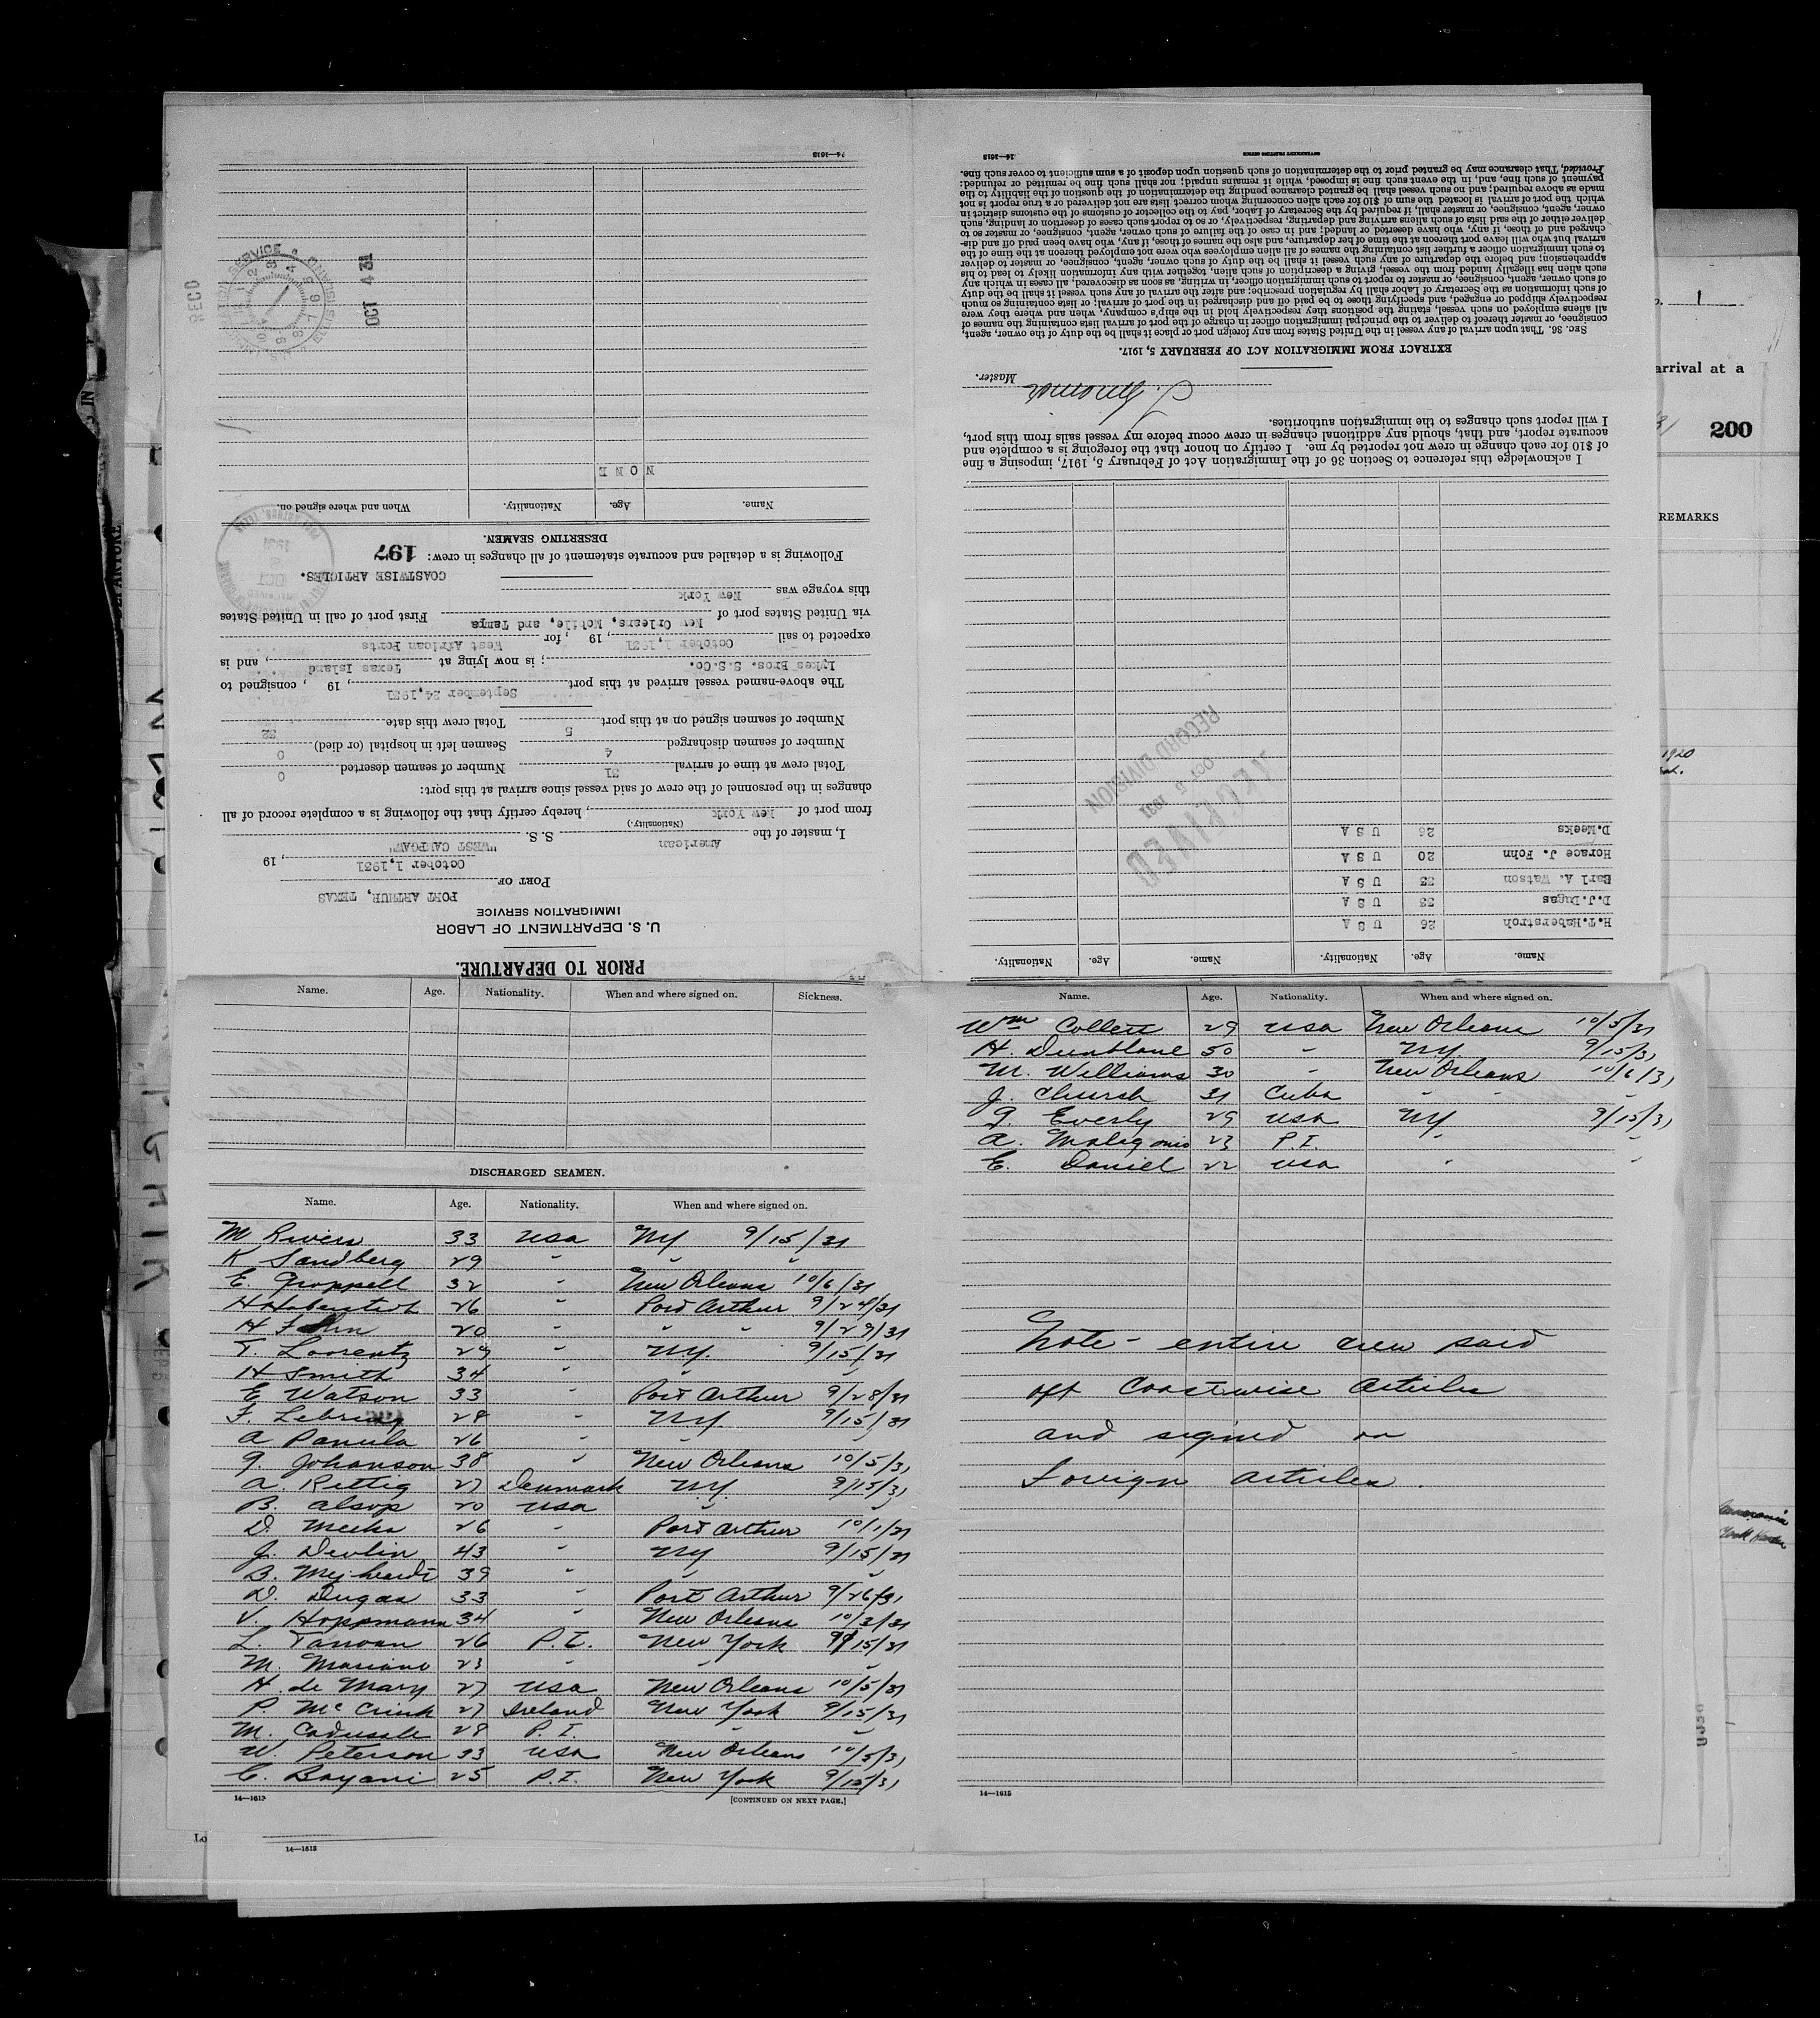 PRIOR TO DEPARTURE.
U. S. DEPARTMENT OF LABOR
IMMIGRATION SERVICE
PORT ARTHUR, TEXAS
PORT OF
October 1, 1931, 19
I, master of the American S. S. "WEST CAMPGAW"
(Nationality.)
from port of New York, hereby certify that the following is a complete record of all
changes in the personnel of the crew of said vessel since arrival at this port:
Total crew at time of arrival 31 Number of seamen deserted 0
Number of seamen discharged 4 Seamen left in hospital (or died) 0
Number of seamen signed on at this port 5 Total crew this date 32
The above-named vessel arrived at this port September 24, 1931, 19 , consigned to
Lykes Bros. S.S.Co.; is now lying at Texas Island, and is
expected to sail October 1, 1931, 19 , for West African Ports
via United States port of New Orleans, Mobile, and Tampa First port of call in United States
this voyage was New York
COASTWISE ARTICLES.
Following is a detailed and accurate statement of all changes in crew: 197
DESERTING SEAMEN.
Name. Age. Nationality. When and where signed on.
NONE
OCT 4 31
RECD
14—1613
Name. Age. Nationality. Name. Age. Nationality.
H.T.Haberstroh 26 U S A
D.J.Dugas 33 U S A
Earl A. Watson 33 U S A
Horace J. Fohn 20 U S A
D.Meeks 26 U S A
RECEIVED
OCT 5 1931
RECORD DIVISION
I acknowledge this reference to Section 36 of the Immigration Act of February 5, 1917, imposing a fine
of $10 for each change in crew not reported by me. I certify on honor that the foregoing is a complete and
accurate report, and that, should any additional changes in crew occur before my vessel sails from this port,
I will report such changes to the immigration authorities.
Master.
EXTRACT FROM IMMIGRATION ACT OF FEBRUARY 5, 1917.
SEC. 36. That upon arrival of any vessel in the United States from any foreign port or place it shall be the duty of the owner, agent,
consignee, or master thereof to deliver to the principal immigration officer in charge of the port of arrival lists containing the names of
all aliens employed on such vessel, stating the positions they respectively hold in the ship's company, when and where they were
respectively shipped or engaged, and specifying those to be paid off and discharged in the port of arrival; or lists containing so much
of such information as the Secretary of Labor shall by regulation prescribe; and after the arrival of any such vessel it shall be the duty
of such owner, agent, consignee, or master to report to such immigration officer, in writing, as soon as discovered, all cases in which any
such alien has illegally landed from the vessel, giving a description of such alien, together with any information likely to lead to his
apprehension; and before the departure of any such vessel it shall be the duty of such owner, agent, consignee, or master to deliver
to such immigration officer a further list containing the names of all alien employees who were not employed thereon at the time of the
arrival but who will leave port thereon at the time of her departure, and also the names of those, if any, who have been paid off and dis-
charged and of those, if any, who have deserted or landed; and in case of the failure of such owner, agent, consignee, or master so to
deliver either of the said lists of such aliens arriving and departing, respectively, or so to report such cases of desertion or landing, such
owner, agent, consignee, or master shall, if required by the Secretary of Labor, pay to the collector of customs of the customs district in
which the port of arrival is located the sum of $10 for each alien concerning whom correct lists are not delivered or a true report is not
made as above required; and no such vessel shall be granted clearance pending the determination of the question of the liability to the
payment of such fine, and, in the event such fine is imposed, while it remains unpaid; nor shall such fine be remitted or refunded:
Provided, That clearance may be granted prior to the determination of such question upon deposit of a sum sufficient to cover such fine.
14—1613 GOVERNMENT PRINTING OFFICE
Name. Age. Nationality. When and where signed on. Sickness.
DISCHARGED SEAMEN.
Name. Age. Nationality. When and where signed on.
M Rivers 33 USA NY 9/15/31
K Sandberg 29 " " "
E. Groppell 32 " New Orleans 10/6/31
H Haberstroh 26 " Port Arthur 9/24/31
H Fohn 20 " " " 9/29/31
T. Loorentz 29 " NY. 9/15/31
H Smith 34 " " "
E Watson 33 " Port Arthur 9/28/31
F. 28 " NY. 9/15/31
A Panula 26 " " "
G. Johanson 38 " New Orleans 10/5/31
A. Rettig 27 Denmark NY. 9/15/31
B. Alsop 20 USA " "
D. Meeks 26 " Port Arthur 10/1/31
J. Devlin 43 " NY 9/15/31
B. 39 " " "
D. Dugas 33 " Port Arthur 9/26/31
V. Hoppmann 34 " New Orleans 10/3/31
L. Tanoan 26 P.I. New York 9/15/31
M. Mariano 23 " " "
H. de Mary 27 USA New Orleans 10/5/31
P. McCrink 27 Ireland New York 9/15/31
M. 28 P.I. " "
W. Peterson 33 USA New Orleans 10/5/31
C. Bayani 25 P.I. New York 9/15/31
14—1613 [CONTINUED ON NEXT PAGE.]
14—1613
Name. Age. Nationality. When and where signed on.
Wm Collett 29 USA New Orleans 10/5/31
H. Dunblane 50 " NY. 9/15/31
M. Williams 30 " New Orleans 10/6/31
J. Church 31 Cuba " " "
G. Everly 29 USA NY 9/15/31
A. 23 P.I. " "
E. Daniel 22 USA " "
Note - entire crew paid
off Coastwise Articles
and signed on
Foreign Articles.
14—1613
1
arrival at a
200
REMARKS
1920